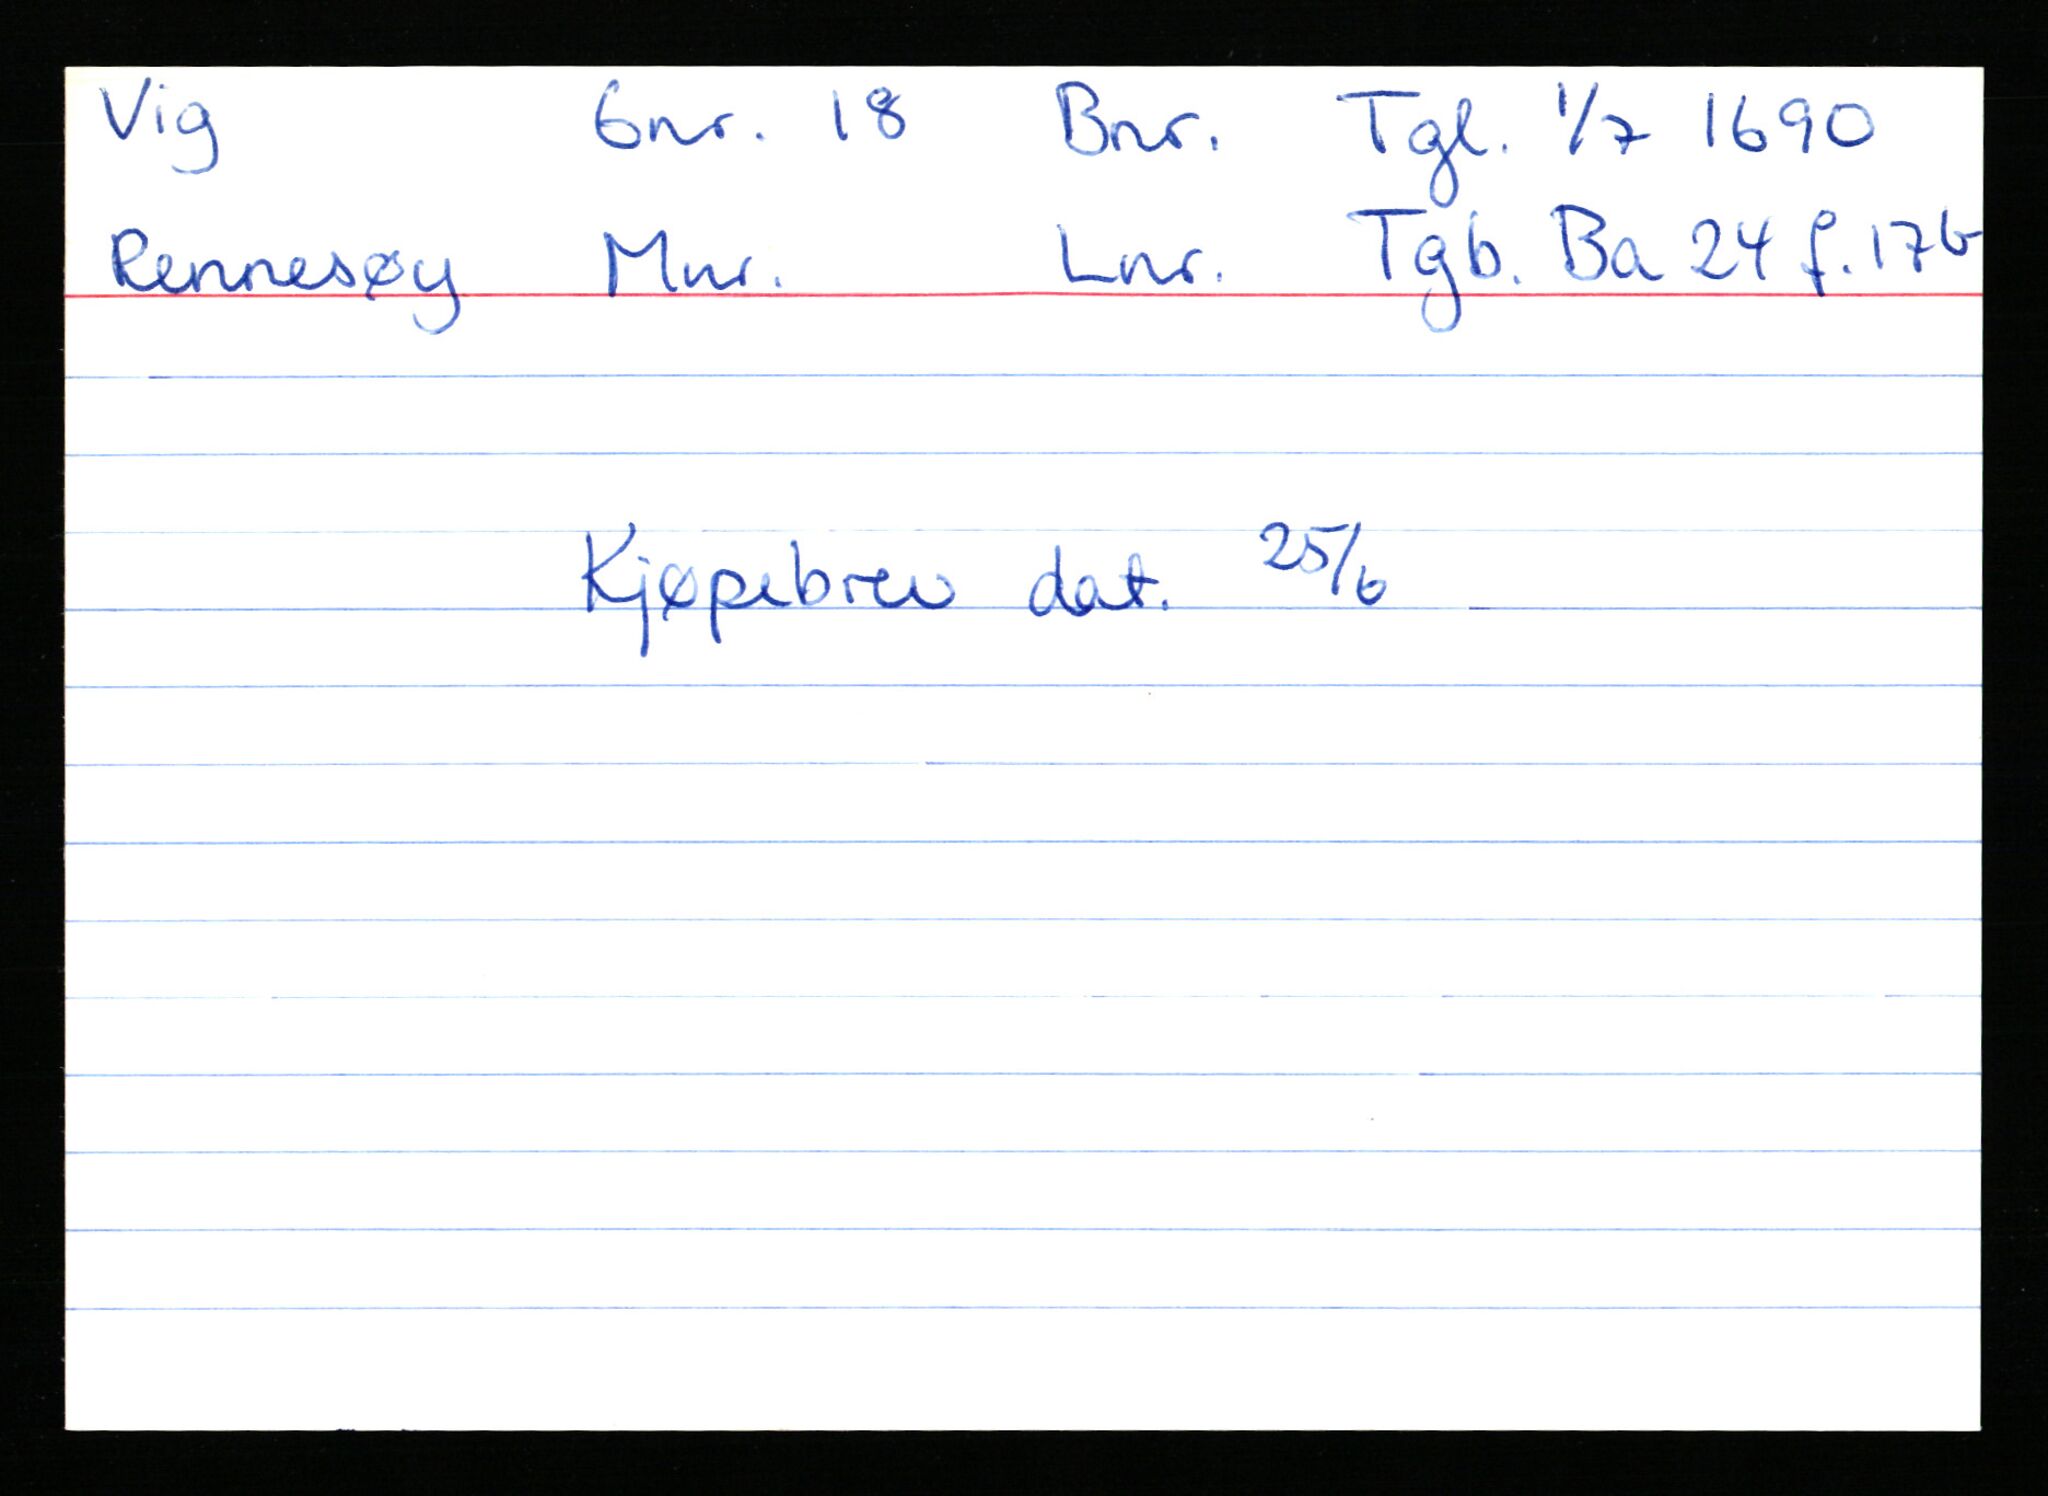 Vig Gnr. 18 Bnr. Tgl. 1/7 1690
Rennesøy Mnr. Lnr. Tgb. Ba 24 f. 17b
Kjøpebrev dat. 25/6